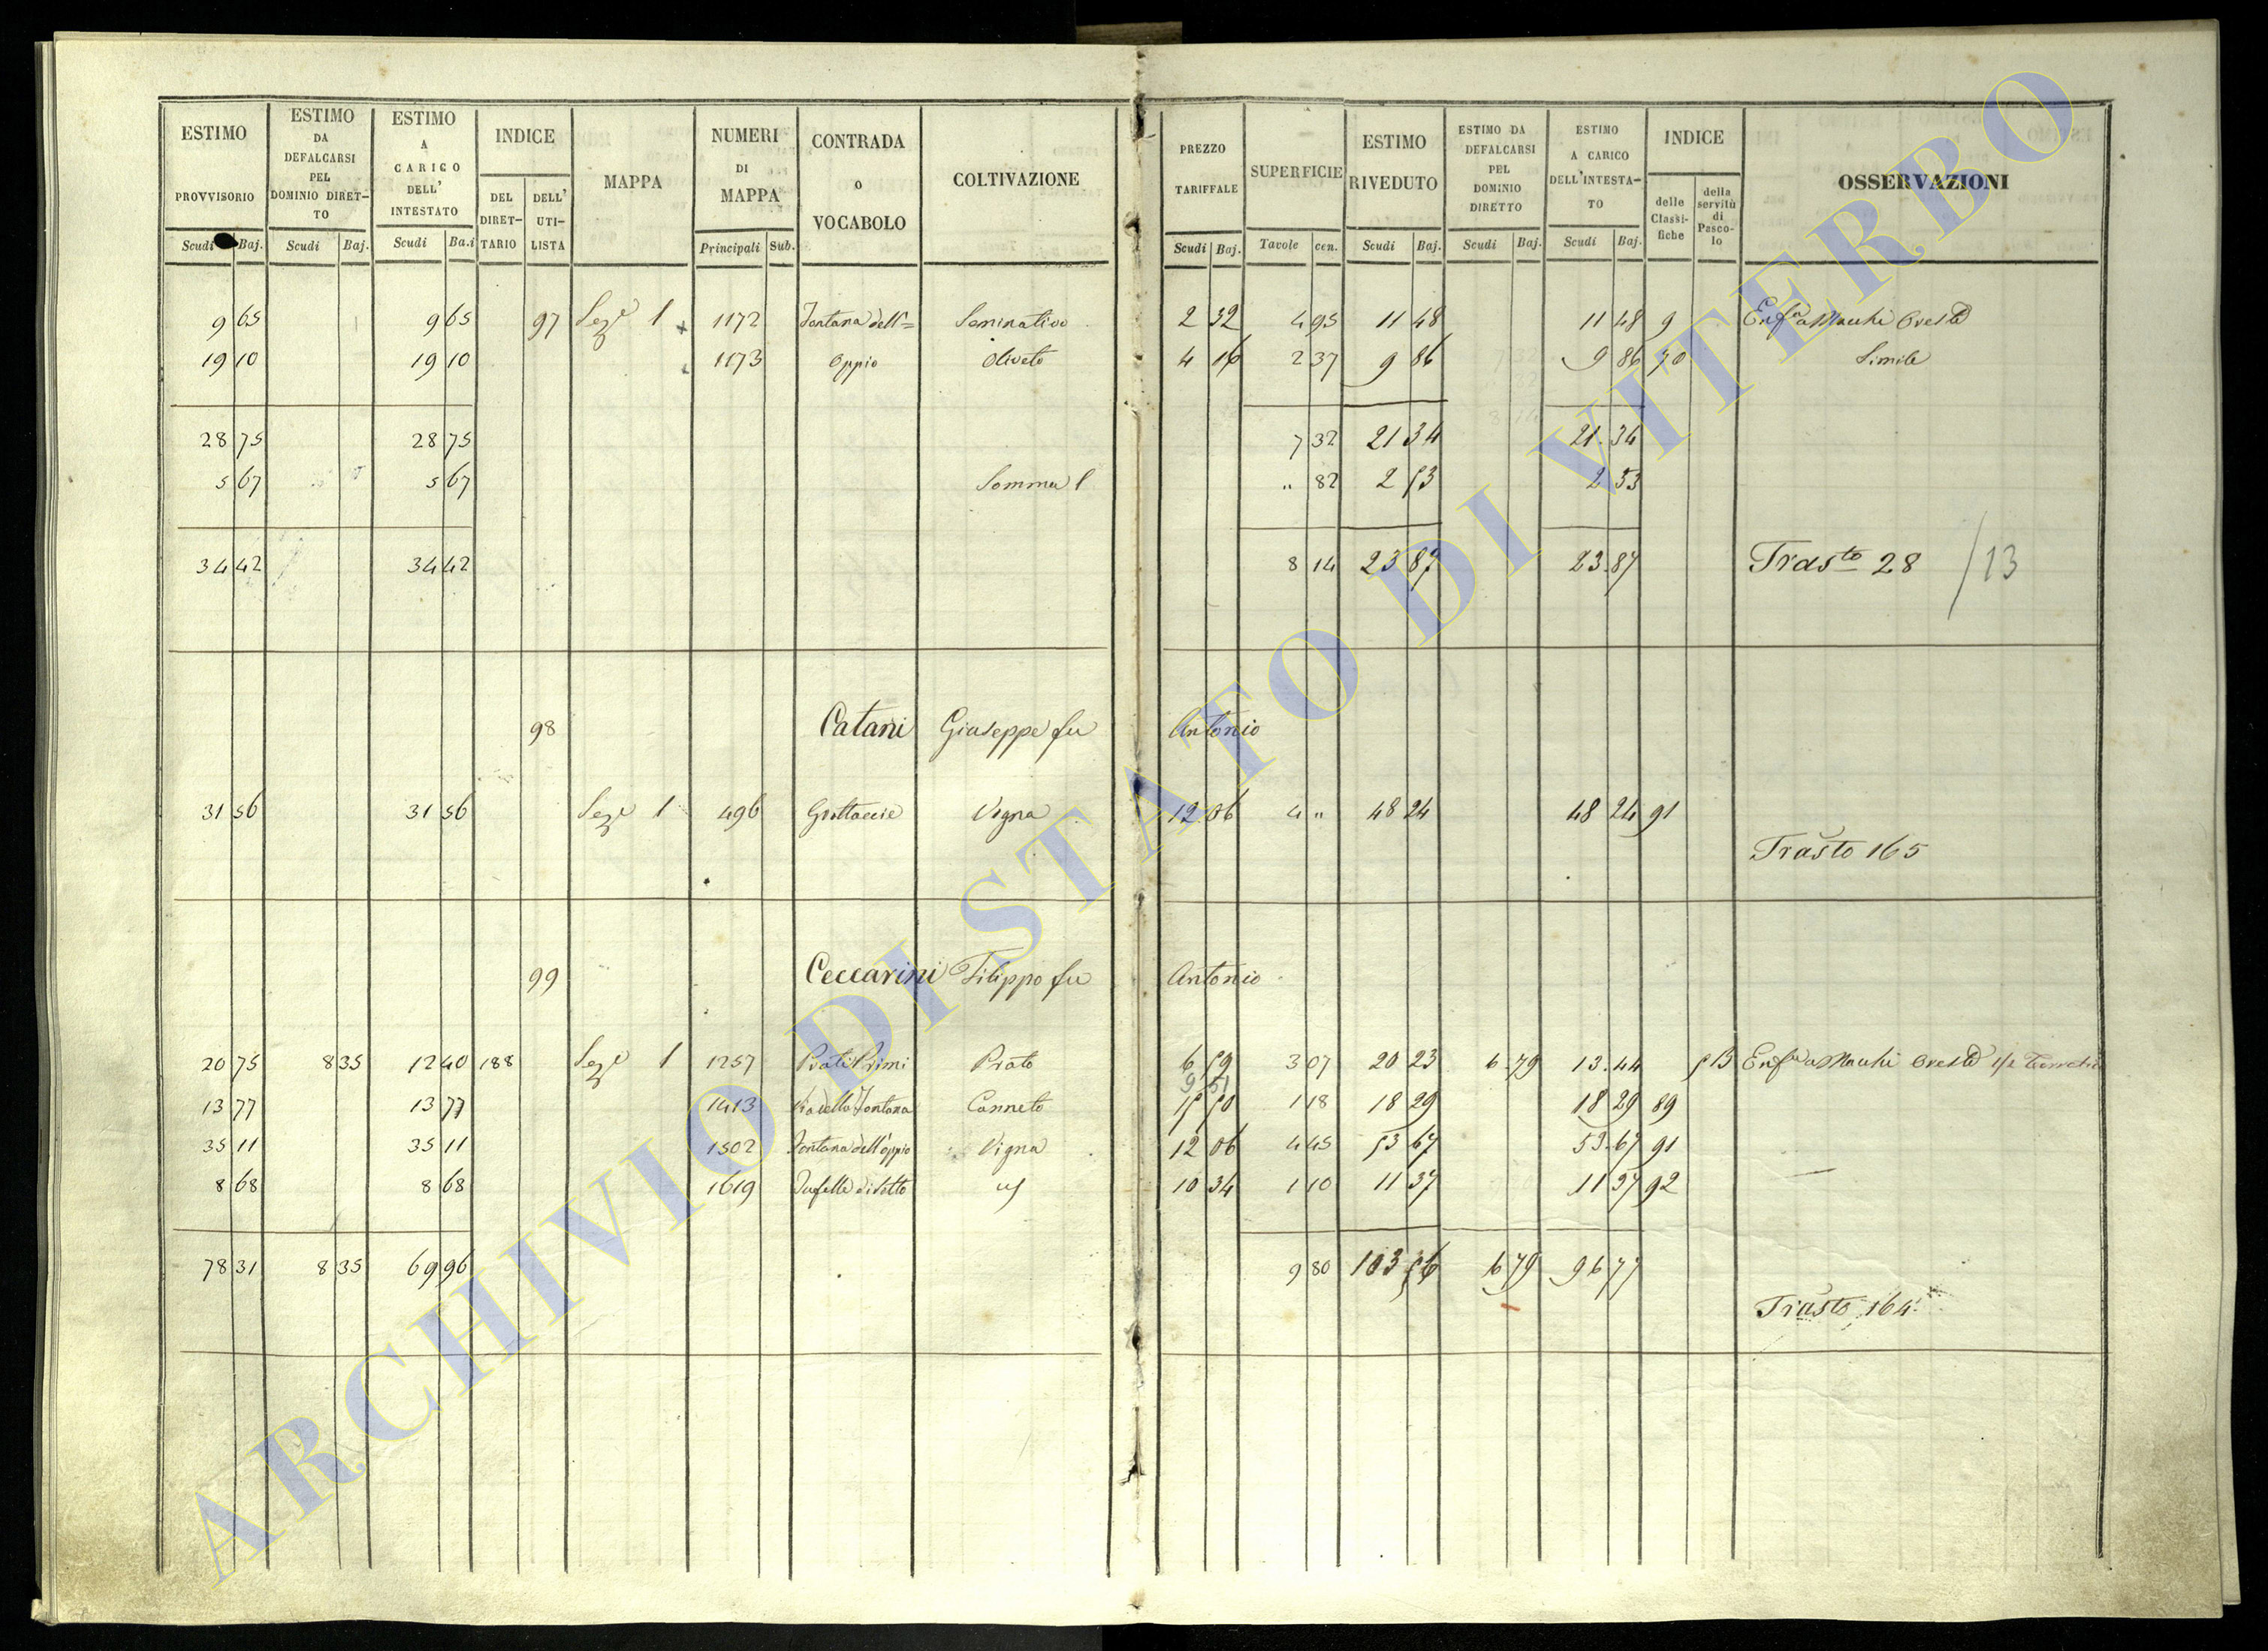 ESTIMO PROVVISORIO Scudi Baj.
ESTIMO DA DEFALCARSI PEL DOMINIO DIRET-TO Scudi Baj.
ESTIMO A CARICO DELL' INTESTATO Scudi Ba.i
INDICE DEL DIRET-TARIO DELL' UTI-LISTA
MAPPA
NUMERI DI MAPPA Principali Sub.
CONTRADA O VOCABOLO
COLTIVAZIONE
PREZZO TARIFFALE Scudi Baj.
SUPERFICIE Tavole cen.
ESTIMO RIVEDUTO Scudi Baj.
ESTIMO DA DEFALCARSI PEL DOMINIO DIRETTO Scudi Baj.
ESTIMO A CARICO DELL'INTESTA-TO Scudi Baj.
INDICE delle Classi-fiche della servitù di Pasco-lo
OSSERVAZIONI
9 65 9 65 97 Sez.e 1 1172 Fontana dell'= Seminativo 2 32 4 95 11 48 11 48 9 Enf.a Macchi Oreste
19 10 19 10 1173 Oppio Oliveto 4 16 2 37 9 86 9 86 70 Simile
28 75 28 75 7 32 21 34 21.34
5 67 5 67 Somma l „ 82 2 53 2 53
34 42 34 42 8 14 23 87 23.87 Trasto 28 /13
98 Catani Giuseppe fu Antonio
31 56 31 56 Sez.e 1 496 Grottaccie Vigna 12.06 4 „ 48 24 48 24 91
Trasto 165
99 Ceccarini Filippo fu Antonio
20 75 8 35 12 40 188 Sez.e 1 1257 Prati Primi Prato 6 59 3 07 20 23 6.79 13.44 Enf.a Macchi Oreste
13 77 13 77 1413 Via della Fontana Canneto 15 50 1 18 18 29 18 29 89
35 11 35 11 1502 Fontana dell'oppio Vigna 12 06 4 45 53 67 53.67 91
8 68 8 68 1619 10 34 1 10 11 37 11 37 92
78 31 8 35 69 96 9 80 103 56 6 79 96 77
Trasto 164
ARCHIVIO DI STATO DI VITERBO